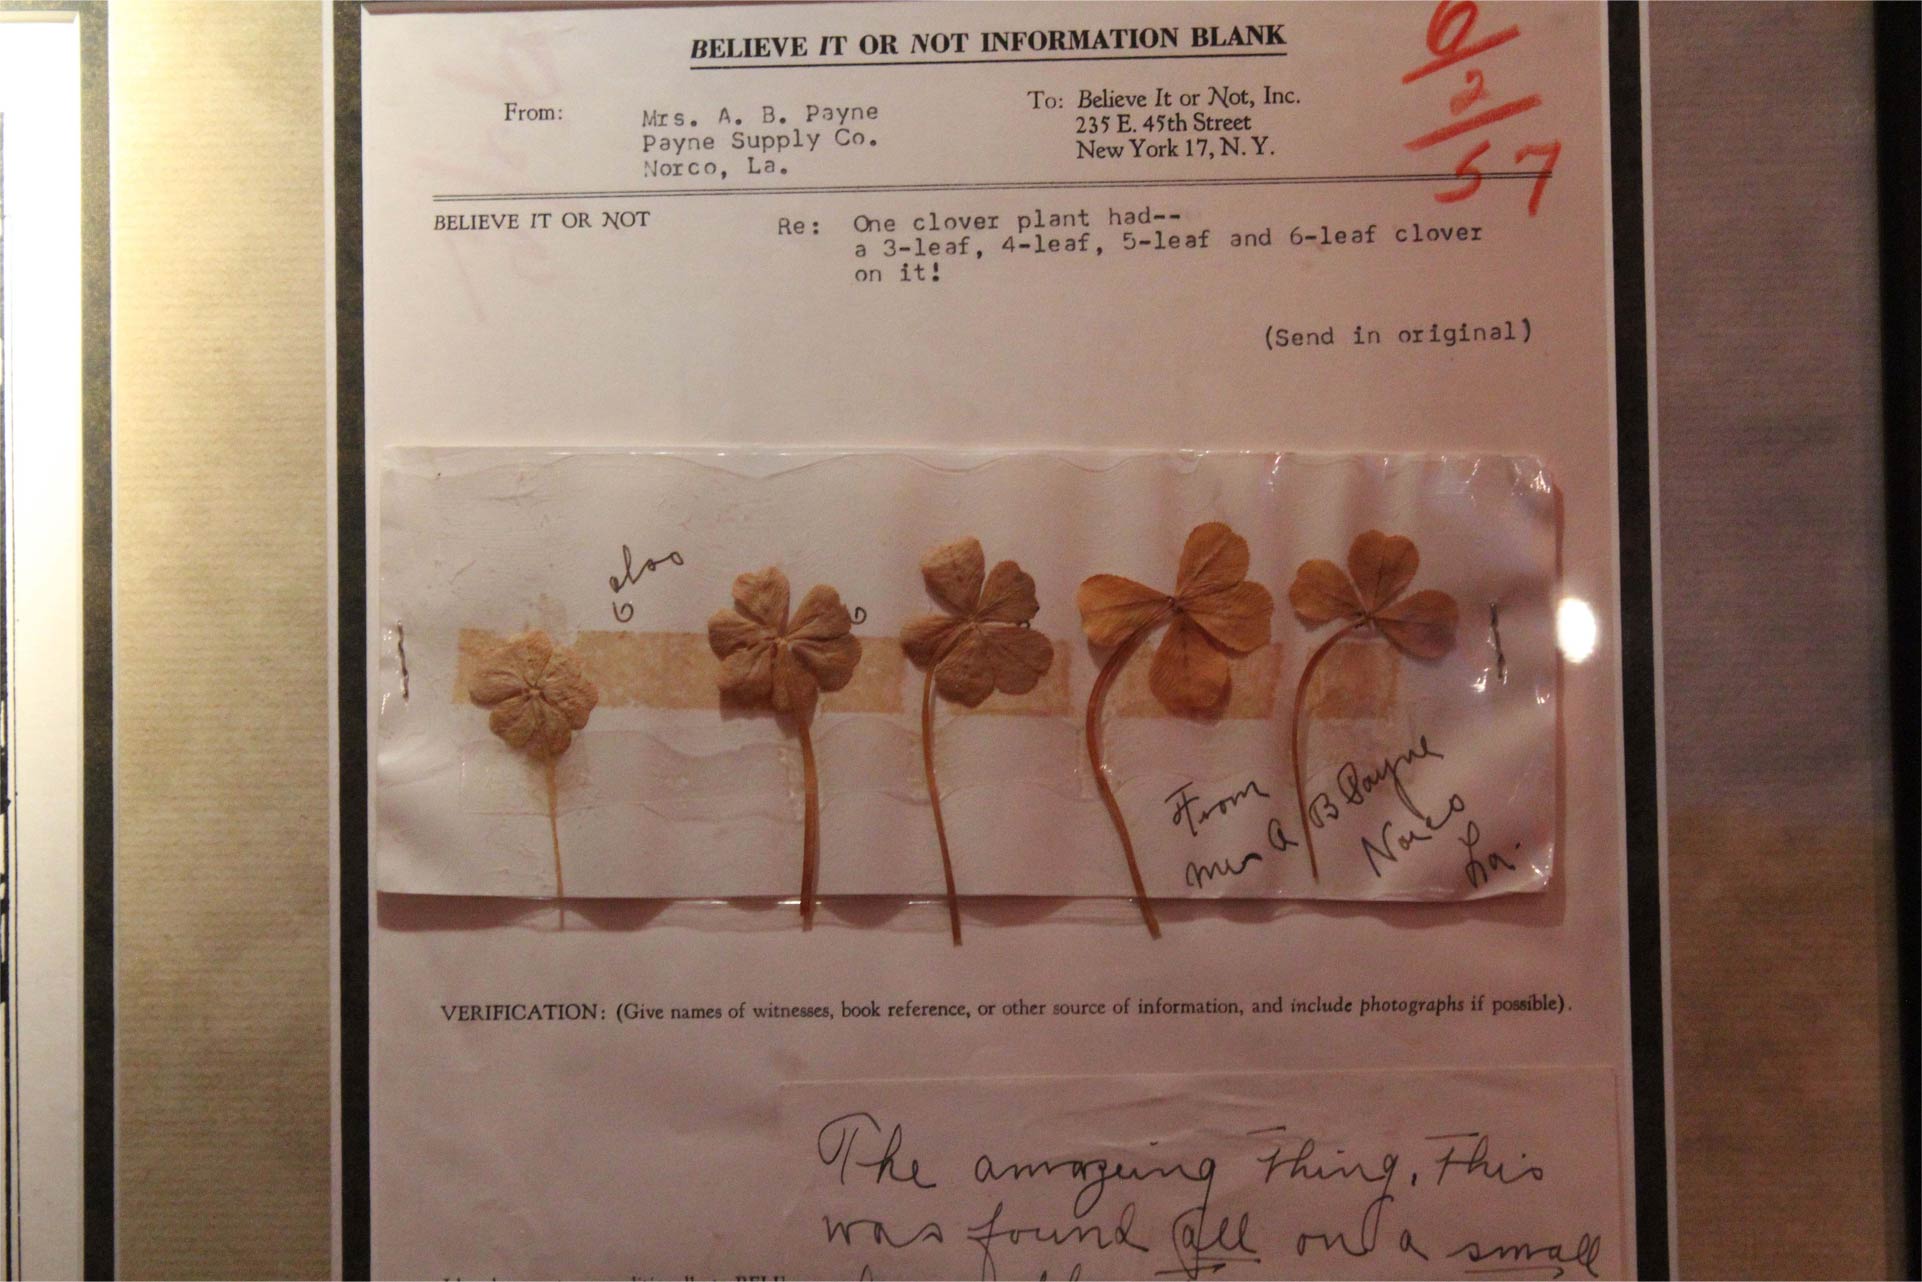 BELIEVE IT OR NOT INFORMATION BLANK
6
2
57
From: Mrs. A. B. Payne
Payne Supply Co.
Norco, La.
To: Believe It or Not, Inc.
235 E. 45th Street
New York 17, N. Y.
BELIEVE IT OR NOT
Re: One clover plant had--
a 3-leaf, 4-leaf, 5-leaf and 6-leaf clover
on it!
(Send in original)
also
6
6
From
Mrs A B Payne
Norco
La.
VERIFICATION: (Give names of witnesses, book reference, or other source of information, and include photographs if possible).
The amazeing Thing, This
was found all on a small